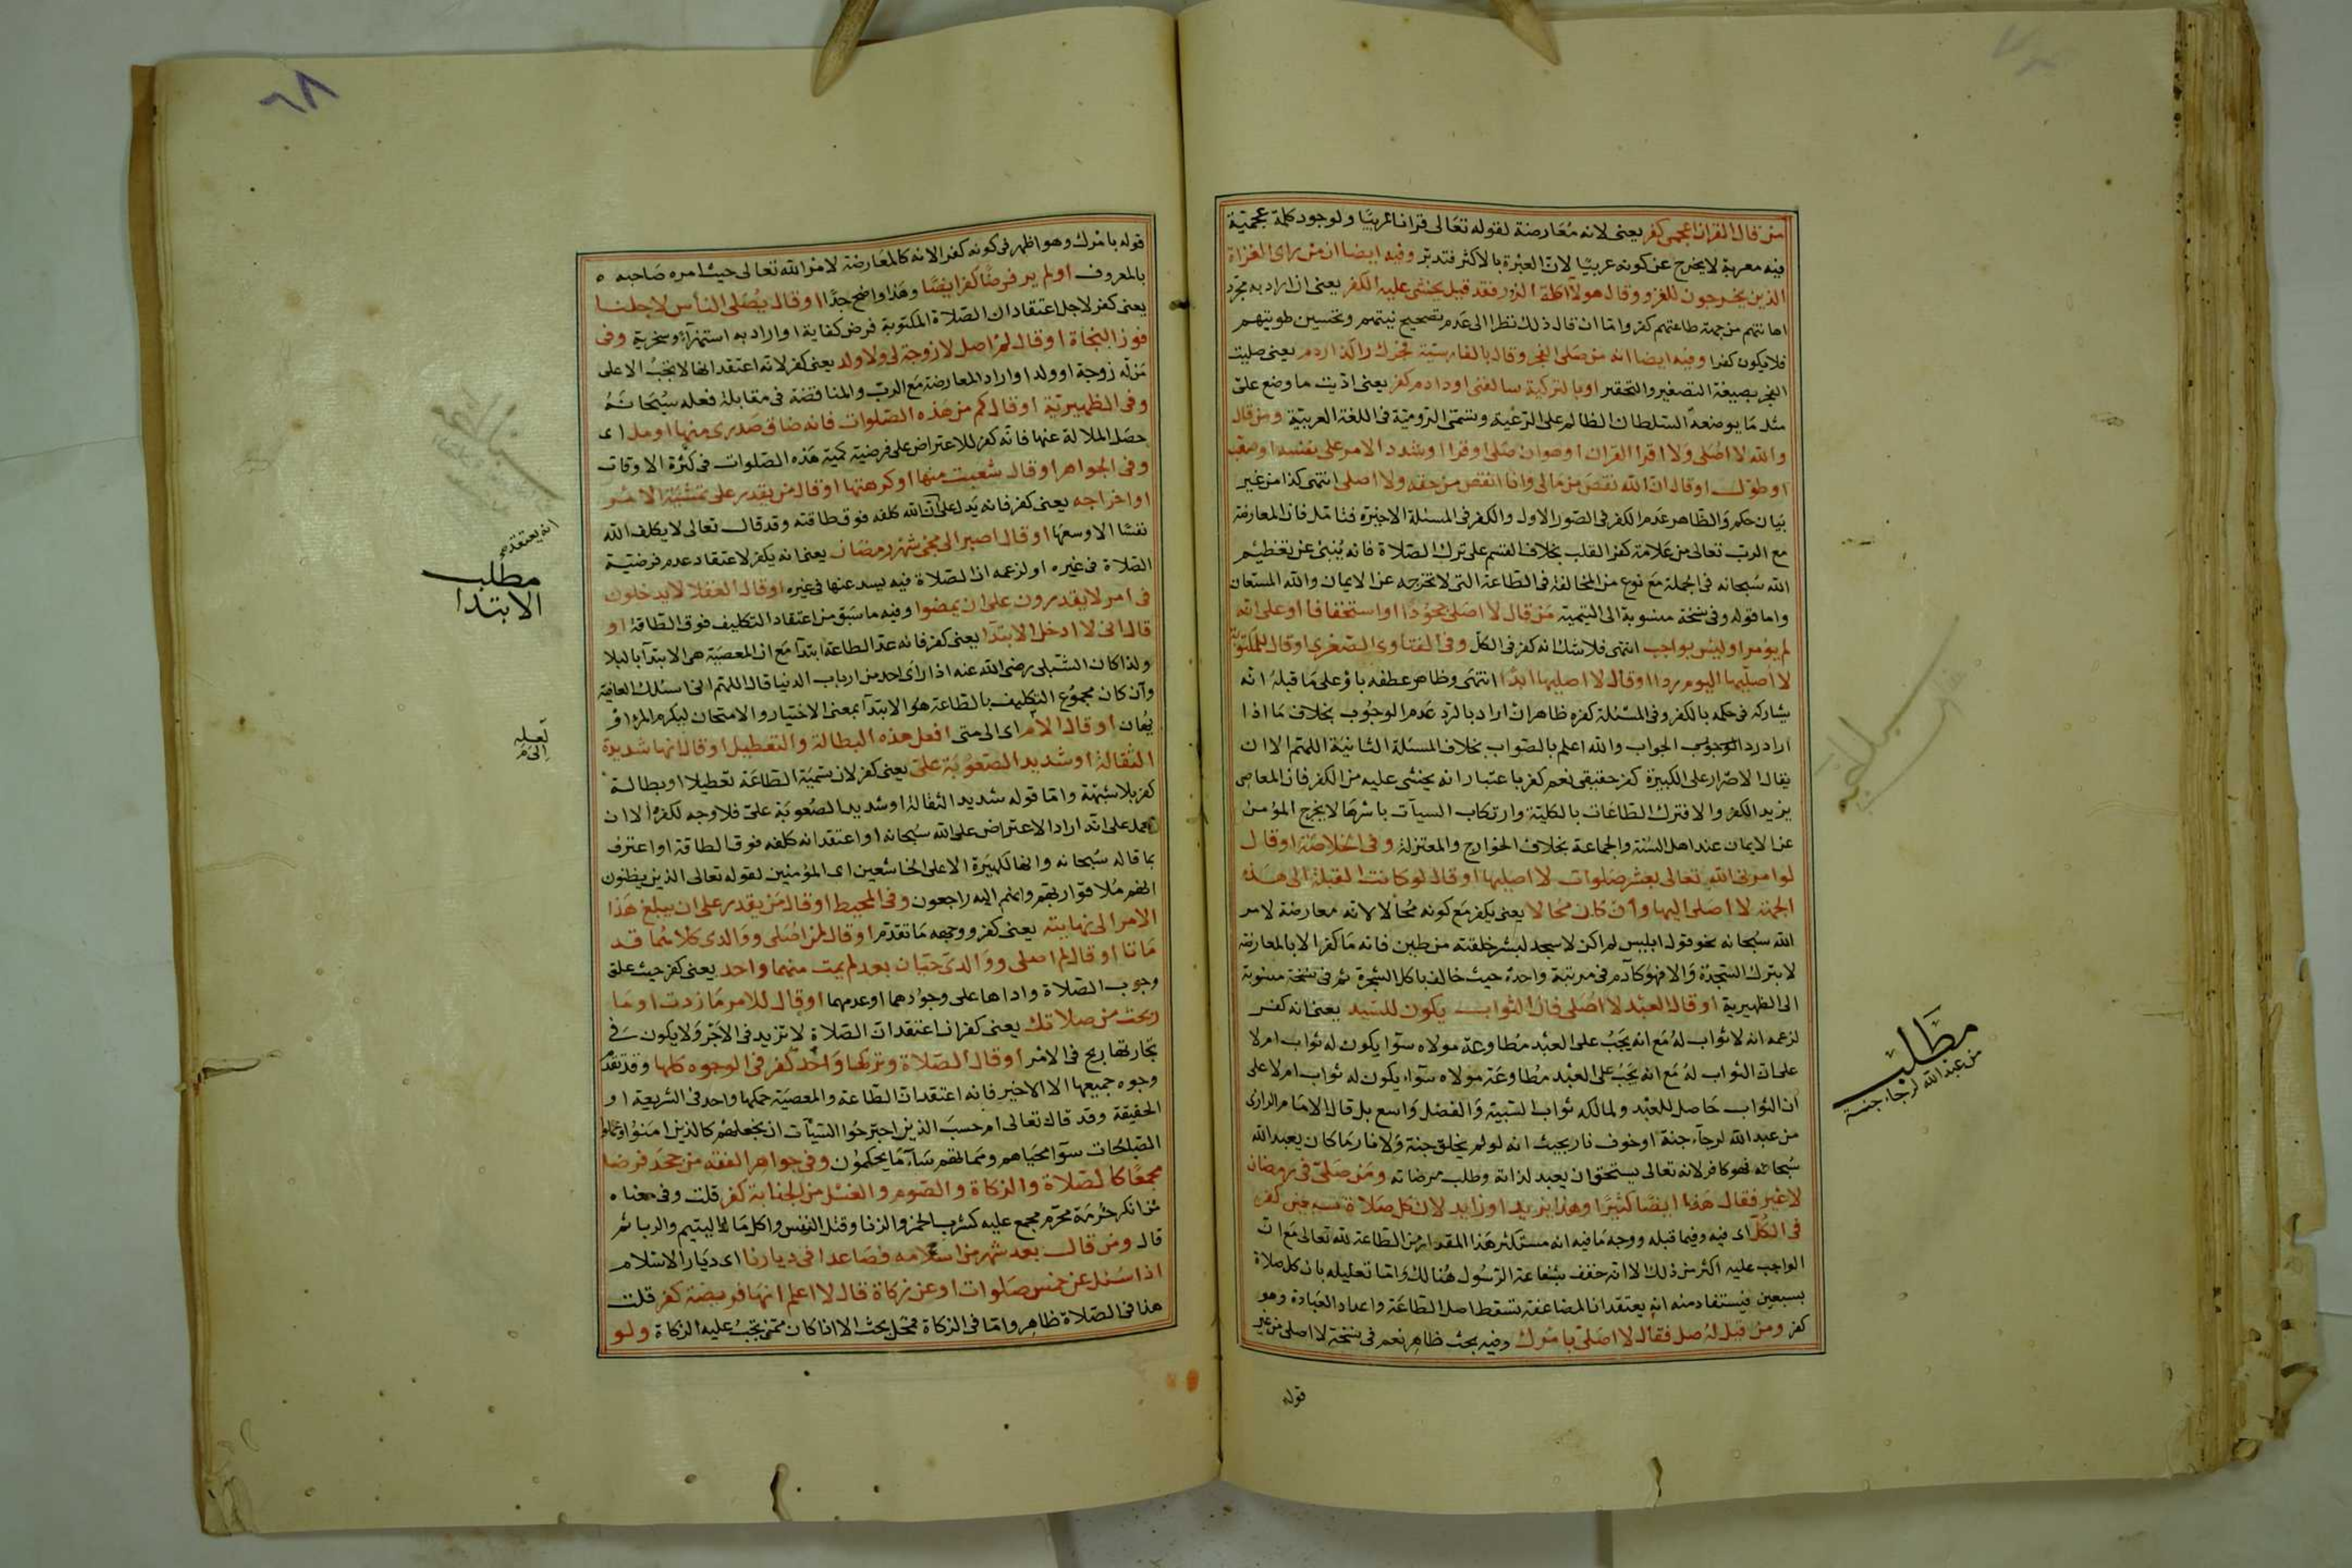 من قال القران اعجمي كفر يعني لانه معارضة لقوله تعالى قرانا عربيا ولوجود كلمة عجمية
فيه معربة لا يخرج عن كونه عربيا لان العبرة بالاكثر فتدبر وفيه ايضا ان من راى الغزاة
الذين يخرجون للغزو وقال هولاء اكلة الرز فقد قيل يخشى عليه الكفر يعني ان اراد به مجرد
اهانتهم من جهة طاعتهم كفر واما ان قال ذلك نظرا الى عدم تصحيح نيتهم وتحسين طويتهم
فلا يكون كفرا وفيه ايضا انه من صلى الفجر وقال بالفارسية فجرك را كذاردم يعني صليت
الفجر بصيغة التصغير والتحقير او بالتركية سالغنى اودادم كفر يعني اديت ما وضع علي
مثل ما يوضعه السلطان الظالم على الرعية وتسمى الرومية في اللغة العربية ومن قال
والله لا اصلي ولا اقرا القران او هوان صلى او قرا او شدد الامر على نفسه او صعب
او طول او قال ان الله نقص من مالي وانا انقص من حقه ولا اصلي انتهى كذا من غير
بيان حكم والظاهر عدم الكفر في الصور الاول والكفر في المسئلة الاخيرة فتامل فان المعارضة
مع الرب تعالى من علامة كفر القلب بخلاف القسم على ترك الصلاة فانه ينبئ عن تعظيم
الله سبحانه في الجملة مع نوع من المخالفة في الطاعة التي لا تخرجه عن الايمان والله المستعان
واما قوله وفي نسخة منسوبة الى اليتيمية من قال لا اصلي جحودا او استخفافا او على انه
لم يؤمر او ليس بواجب انتهى فلا شك انه كفر في الكل وفي الفتاوى الصغرى او قال للمكتوبة
لا اصليها اليوم ردا او قال لا اصليها ابدا انتهى وظاهر عطفه باو على ما قبله انه
يشاركه في حكمه بالكفر وفي المسئلة كفره ظاهر ان اراد بالرد عدم الوجوب بخلاف ما اذا
اراد رد الوجوب الجواب والله اعلم بالصواب بخلاف المسئلة الثانية اللهم الا ان
يقال الاصرار على الكبيرة كفر حقيقي نعم كفر باعتبار انه يخشى عليه من الكفر فان المعاصي
بريد الكفر والا فترك الطاعات بالكلية وارتكاب السيآت باسرها لا يخرج المؤمن
عن الايمان عند اهل السنة والجماعة بخلاف الخوارج والمعتزلة وفي الخلاصة او قال
لو امرني الله تعالى بعشر صلوات لا اصليها او قال لو كانت القبلة الى هذه
الجهة لا اصلي اليها وان كان محالا يعني يكفر مع كونه محالا لانه معارضة لامر
الله سبحانه نحو قول ابليس لم اكن لاسجد لبشر خلقته من طين فانه ما كفر الا بالمعارضة
لا بترك السجدة والا فهو كآدم في مرتبة واحدة حيث خالف باكل الشجرة ثم في نسخة منسوبة
الى الظهيرية او قال العبد لا اصلي فان الثواب يكون للسيد يعني انه كفر
لزعمه انه لا ثواب له مع انه يجب على العبد مطاوعة مولاه سوآ يكون له ثواب ام لا
على ان الثواب له مع انه يجب على العبد مطاوعة مولاه سواء يكون له ثواب ام لا على
ان الثواب حاصل للعبد ولمالكه ثواب السببية والفضل واسع بل قال الامام الرازي
من عبد الله لرجآء جنة او خوف نار بحيث انه لو لم يخلق جنة ولا نار ما كان يعبد الله
سبحانه فهو كافر لانه تعالى يستحق ان يعبد لذاته وطلب مرضاته ومن صلى في رمضان
لا غير فقال هذا ايضا كثيرا وهذا يزيد او زايد لان كل صلاة بسبعين كفر
في الكل اى فيه وفيما قبله ووجه ما فيه انه مستكثر هذا المقدار من الطاعة لله تعالى مع ان
الواجب عليه اكثر من ذلك الا انه خفف بشفاعة الرسول هنالك واما تعليله بان كل صلاة
بسبعين فيستفاد منه انه يعتقد ان المضاعفة تسقط اصل الطاعة واعداد العبادة وهو
كفر ومن قيل له صل فقال لا اصلي بامرك وفيه بحث ظاهر نعم في نسخة لا اصلي من غير
قوله
مطلب
من عبد الله لرجاء جنة
٦٨
قوله بامرك وهو اظهر في كونه كفرا لانه كالمعارضة لامر الله تعالى حيث امره صاحبه
بالمعروف او لم ير فرضا كفر ايضا وهذا واضح جدا او قال يصلي الناس لاجلنا
يعني كفر لاجل اعتقاد ان الصلاة المكتوبة فرض كفاية او اراد به استهزآء وسخرية وفي
فوز النجاة او قال لم اصل لا زوجة لي ولا ولد يعني كفر لانه اعتقد انها لا تجب الا على
من له زوجة او ولد او اراد المعارضة مع الرب والمناقضة في مقابلة فعله سبحانه
وفي الظهيرية او قال كم من هذه الصلوات فانه ضاق صدري منها او مل اى
حصل الملالة عنها فانه كفر للاعتراض على فرضية كمية هذه الصلوات في كثرة الاوقات
وفي الجواهر او قال شعبت منها او كرهتها او قال من يقدر على تمشية الامر
او اخراجه يعني كفر فانه يدل على ان الله كلفه فوق طاقته وقد قال تعالى لا يكلف الله
نفسا الا وسعها او قال اصبر الى مجئ شهر رمضان يعني انه يكفر لاعتقاد عدم فرضية
الصلاة في غيره او لزعمه ان الصلاة فيه يسد عنها في غيره او قال العقلا لا يدخلون
في امر لا يقدرون على ان يمضوا وفيه ما سبق من اعتقاد التكليف فوق الطاقة او
قال اني لا ادخل الابتدآ يعني كفر فانه عد الطاعة ابتدآ مع ان المعصية هي الابتدآ بالبلا
ولذا كان الشبلي رضي الله عنه اذا رأى احد من ارباب الدنيا قال اللهم اني اسئلك العافية
وان كان مجموع التكليف بالطاعة هو الابتدآ بمعنى الاختيار والامتحان ليكرم المرء او
يهان او قال الام اى الى متى افعل هذه البطالة والتعطيل او قال انها شديدة
الثقالة او شديد الصعوبة علي يعني كفر لان تسمية الطاعة تعطيلا او بطالة
كفر بلا شبهة واما قوله شديد الثقالة او شديد الصعوبة علي فلا وجه لكفره الا ان
يحمل على انه اراد الاعتراض على الله سبحانه او اعتقد انه كلفه فوق الطاقة او اعترف
بما قاله سبحانه وانها لكبيرة الا على الخاشعين اى المؤمنين لقوله تعالى الذين يظنون
انهم ملاقوا ربهم وانهم اليه راجعون وفي المحيط او قال من يقدر على ان يبلغ هذا
الامر الى نهايته يعني كفر ووجهه ما تقدم او قال لمن اصلي ووالدى كلاهما قد
ماتا او قال لم اصلي ووالدي حيان بعد لم يمت منهما واحد يعني كفر حيث علق
وجوب الصلاة واداها على وجودهما او عدمهما او قال للامر ما زدت او ما
ربحت من صلاتك يعني كفر ان اعتقد ان الصلاة لا تزيد في الاجر ولا يكون في
تجارتها ربح في الامر او قال الصلاة وتركها واحد كفر في الوجوه كلها وقد تقدم
وجوه جميعها الا الاخير فانه اعتقد ان الطاعة والمعصية حكمها واحد في الشريعة او
الحقيقة وقد قال تعالى ام حسب الذين اجترحوا السيآت ان نجعلهم كالذين امنوا وعملوا
الصلحات سوآ محياهم ومماتهم سآء ما يحكمون وفي جواهر الفقه من جحد فرضا
مجمعا كالصلاة والزكاة والصوم والغسل من الجنابة كفر قلت وفي معناه
من انكر حرمة محرم مجمع عليه كشرب الخمر والزنا وقتل النفس واكل مال اليتيم والربا ثم
قال ومن قال بعد شهر من اسلامه فصاعدا في ديارنا اى ديار الاسلام
اذا سئل عن خمس صلوات او عن زكاة قال لا اعلم انها فريضة كفر قلت
هذا في الصلاة ظاهر واما في الزكاة فمحل بحث الا اذا كان ممن تجب عليه الزكاة ولو
مطلب
الابتدا
لعله
الى م